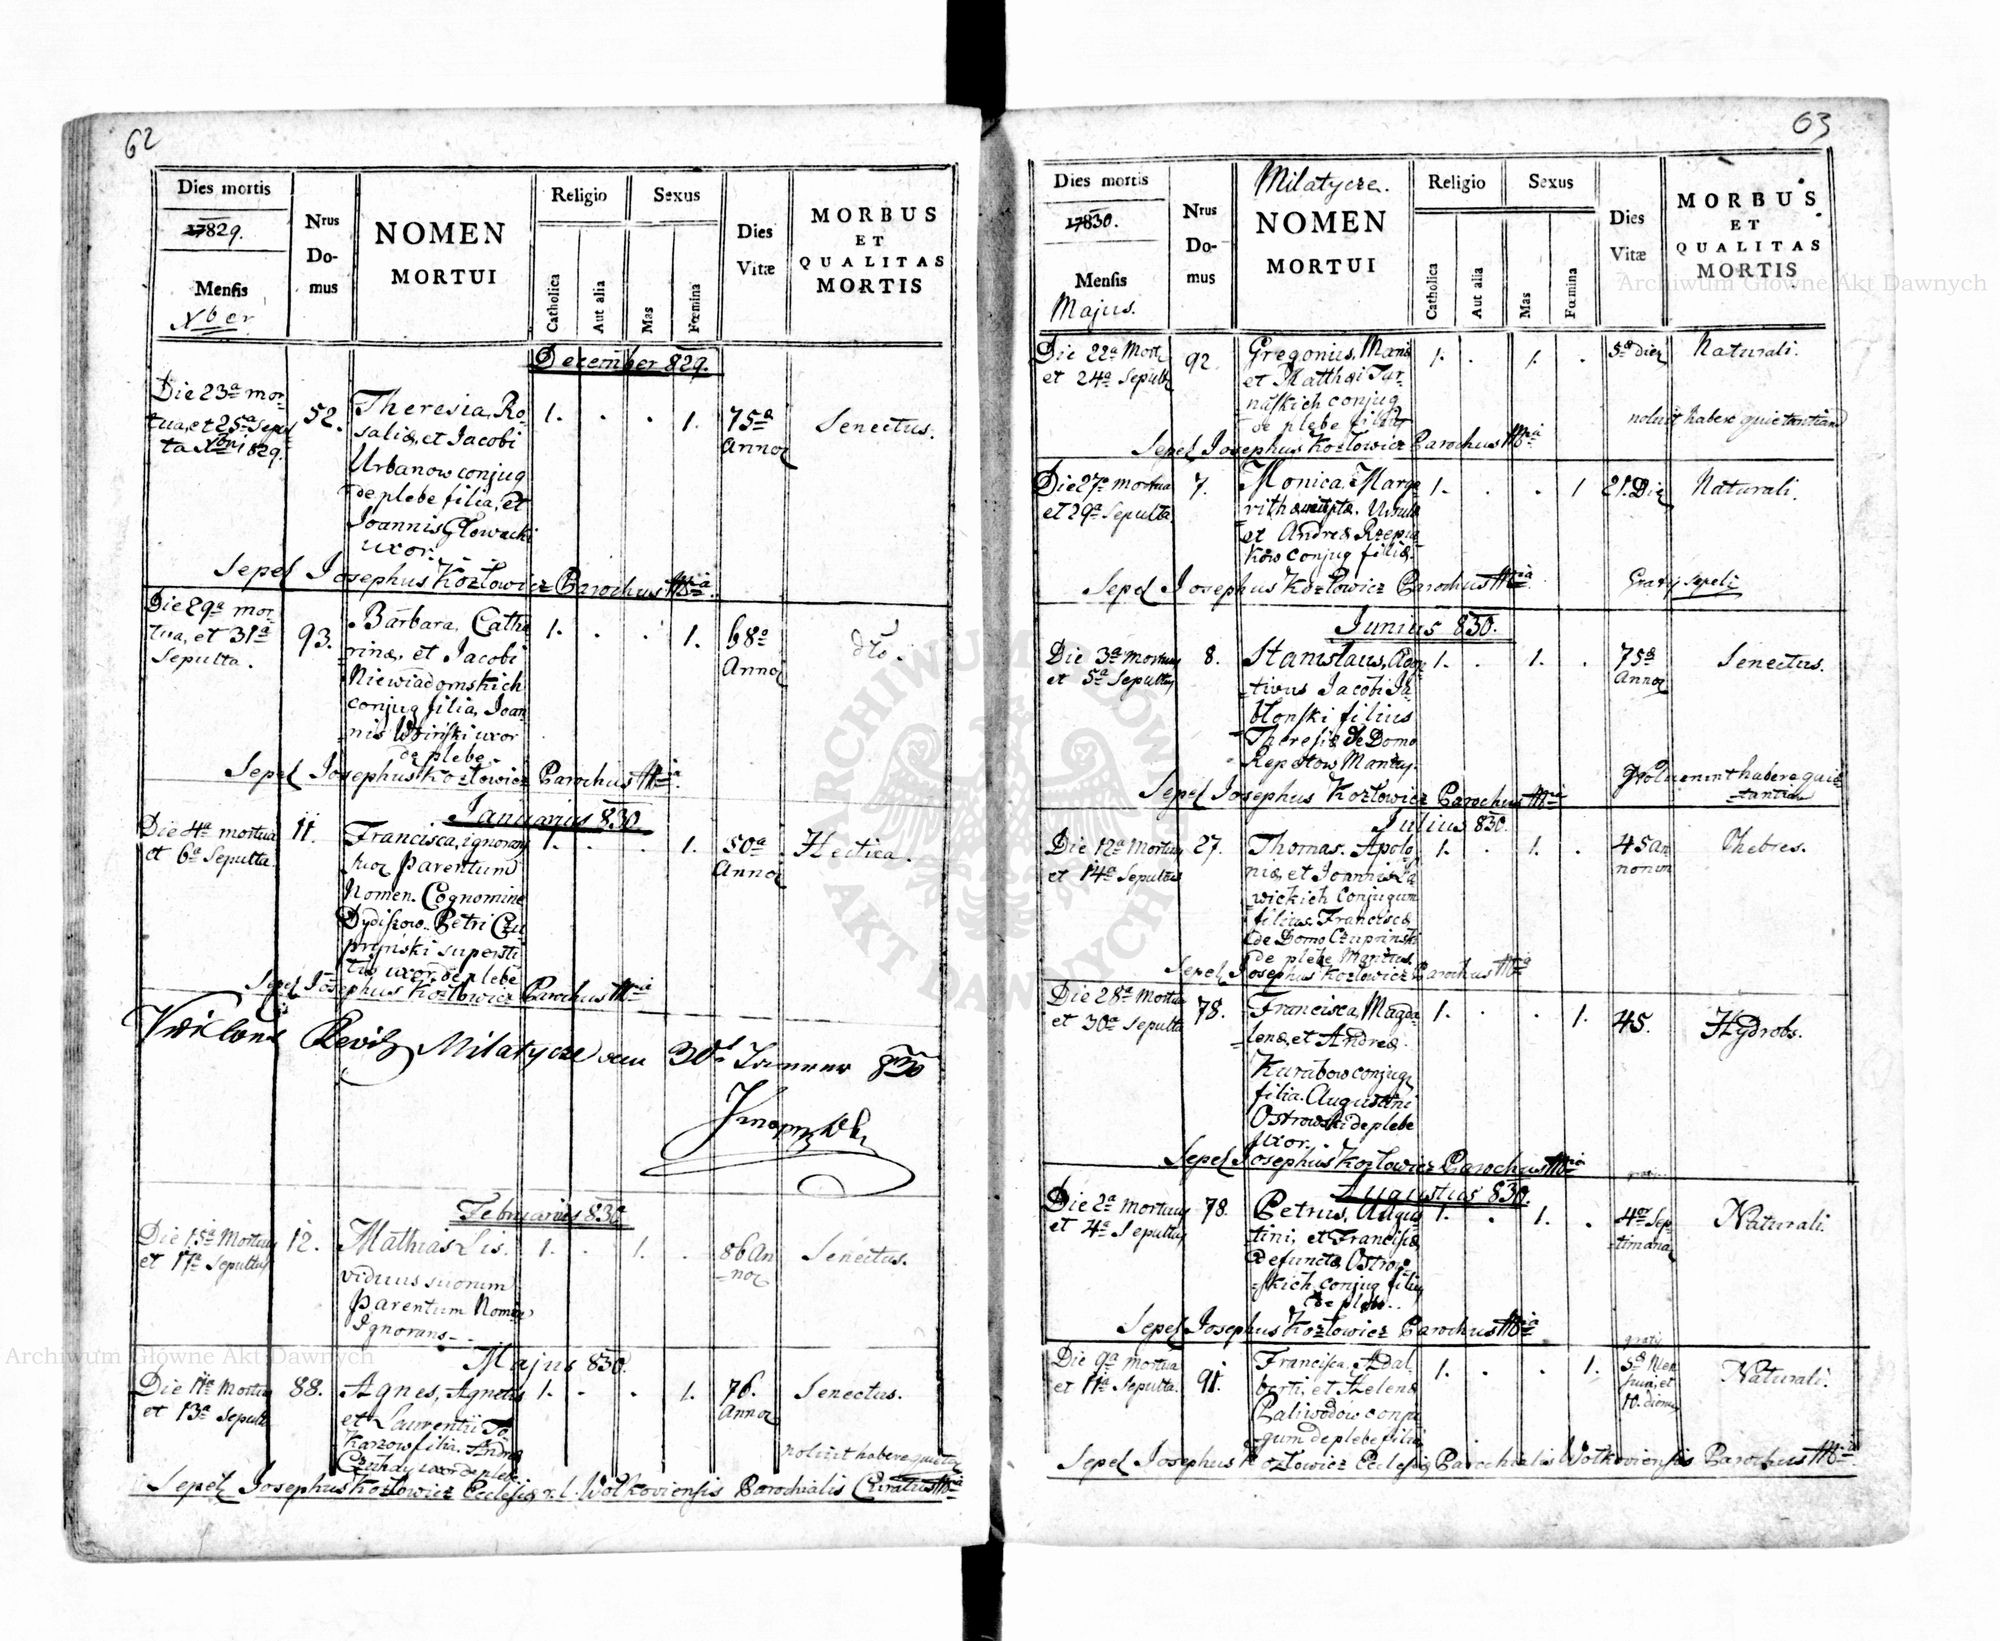 62
Dies mortis
17829.
Mensis
Xber
Nrus
Do-
mus
NOMEN
MORTUI
Religio
Catholica
Aut alia
Sexus
Mas
Fœmina
Dies
Vitæ
MORBUS
ET
QUALITAS
MORTIS
December 829.
Die 23a mor-
tua, et 25a Sepul-
ta Xbri 829.
52.
Theresia, Ro-
saliæ, et Jacobi
Urbanow conjug
de plebe filia, et
Joannis Głowacki
uxor.
1. . . 1.
75a
Annor
Senectus.
Sepel Josephus Kozłowicz Parochus
Die 29a mor-
tua, et 31a
Sepulta.
93.
Barbara, Catha
rinæ, et Jacobi
Niewiadomskich
conjug filia, Joan-
nis uxor
de plebe.
1. . . 1.
68a
Annor
dto.
Sepel Josephus Kozłowicz Parochus
Januarius 830.
Die 4a mortua
et 6a Sepulta
11.
Francisca, ignoran
suor parentum
Nomen. Cognomine
Petri Czu-
prinski supersti
tis uxor, de plebe
1. . . 1.
50a
Annor
Hectica.
Sepel Josephus Kozłowicz Parochus
Milatycze 30t 830
Februarius 830.
Die 15a Mortuus
et 17a Sepultus
12.
Mathias Lis.
viduus suorum
parentum Nomin
Ignorans
1. . 1. .
86 An
nor
Senectus.
Majus 830.
Die 11a Mortua
et 13a Sepulta
88.
Agnes, Agnetis
et Laurentii To-
karzow filia. Andreæ
uxor de plebe
1. . . 1.
76.
Annor
Senectus.
noluit habere quietan
Sepel Josephus Kozłowicz Ecclesiæ r. l. Wołkoviensis Parochialis Curatus
63
Dies mortis
17830.
Mensis
Majus.
Nrus
Do-
mus
Milatycze.
NOMEN
MORTUI
Religio
Catholica
Aut alia
Sexus
Mas
Fœmina
Dies
Vitæ
MORBUS
ET
QUALITAS
MORTIS
Die 22a Mort
et 24a Sepult
92.
Gregorius, Mariæ
et Matthæi Tur-
naskich conjug
de plebe filius
1. . 1. .
5a dier
Naturali.
noluit habere quietantiam
Sepel Josephus Kozłowicz Parochus
Die 27a mortua
et 29a Sepulta
7.
Monica, Marga
ritha Ursulæ
et Andreæ Rzepia-
kow conjug filia
1. . . 1
21. Die
Naturali.
Gratis sepeli
Sepel Josephus Kozłowicz Parochus
Junius 830.
Die 3a mortuus
et 5a Sepultus
8.
Stanislaus, Adop
tivus Jacobi Ja-
błonski filius
Theresiæ de Domo
Repetow Maritus.
1. . 1. .
75a
Annor
Senectus.
Noluerunt habere quie
tantiam
Sepel Josephus Kozłowicz Parochus
Julius 830.
Die 12a Mortuus
et 14a Sepultus
27.
Thomas. Apolo-
niæ, et Joannis Sa
wickich Conjugum
filius. Franciscæ
de Domo Czuprinski
de plebe Maritus.
1. . 1. .
45 an
norum
Phebres.
Sepel Josephus Kozłowicz Parochus
Die 28a Mortua
et 30a Sepulta
78.
Francisca, Magda-
lenæ, et Andreæ
Kurabow conjug
filia. Augustini
Ostrowski de plebe
uxor.
1. . . 1.
45.
Hydrobs.
Sepel Josephus Kozłowicz Parochus
gratis
Augustus 830.
Die 2a Mortuus
et 4a Sepultus
78.
Petrus, Augus
tini, et Franciscæ
defunctæ Ostrow-
skich conjug filius
de plebe.
1. . 1. .
4or Sep-
timanar
Naturali.
Sepel Josephus Kozłowicz Parochus
gratis
Die 9a mortua
et 11a Sepulta.
91.
Francisca. Adal
berti, et Helenæ
Paliwodow conju
gum de plebe filia
1. . . 1.
5a Men
sium, et
10. dierum
Naturali.
Sepel Josephus Kozłowicz Ecclesiæ Parochialis Wołkoviensis Parochus
Archiwum Główne Akt Dawnych
Archiwum Główne Akt Dawnych
ARCHIWUM GŁÓWNE AKT DAWNYCH